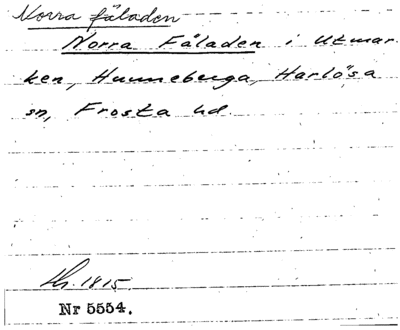 Norra fäladen
Norra Fäladen i Utmar-
ken, Hunneberga, Harlösa
sn, Frosta hd.
1815.
Nr 5554.